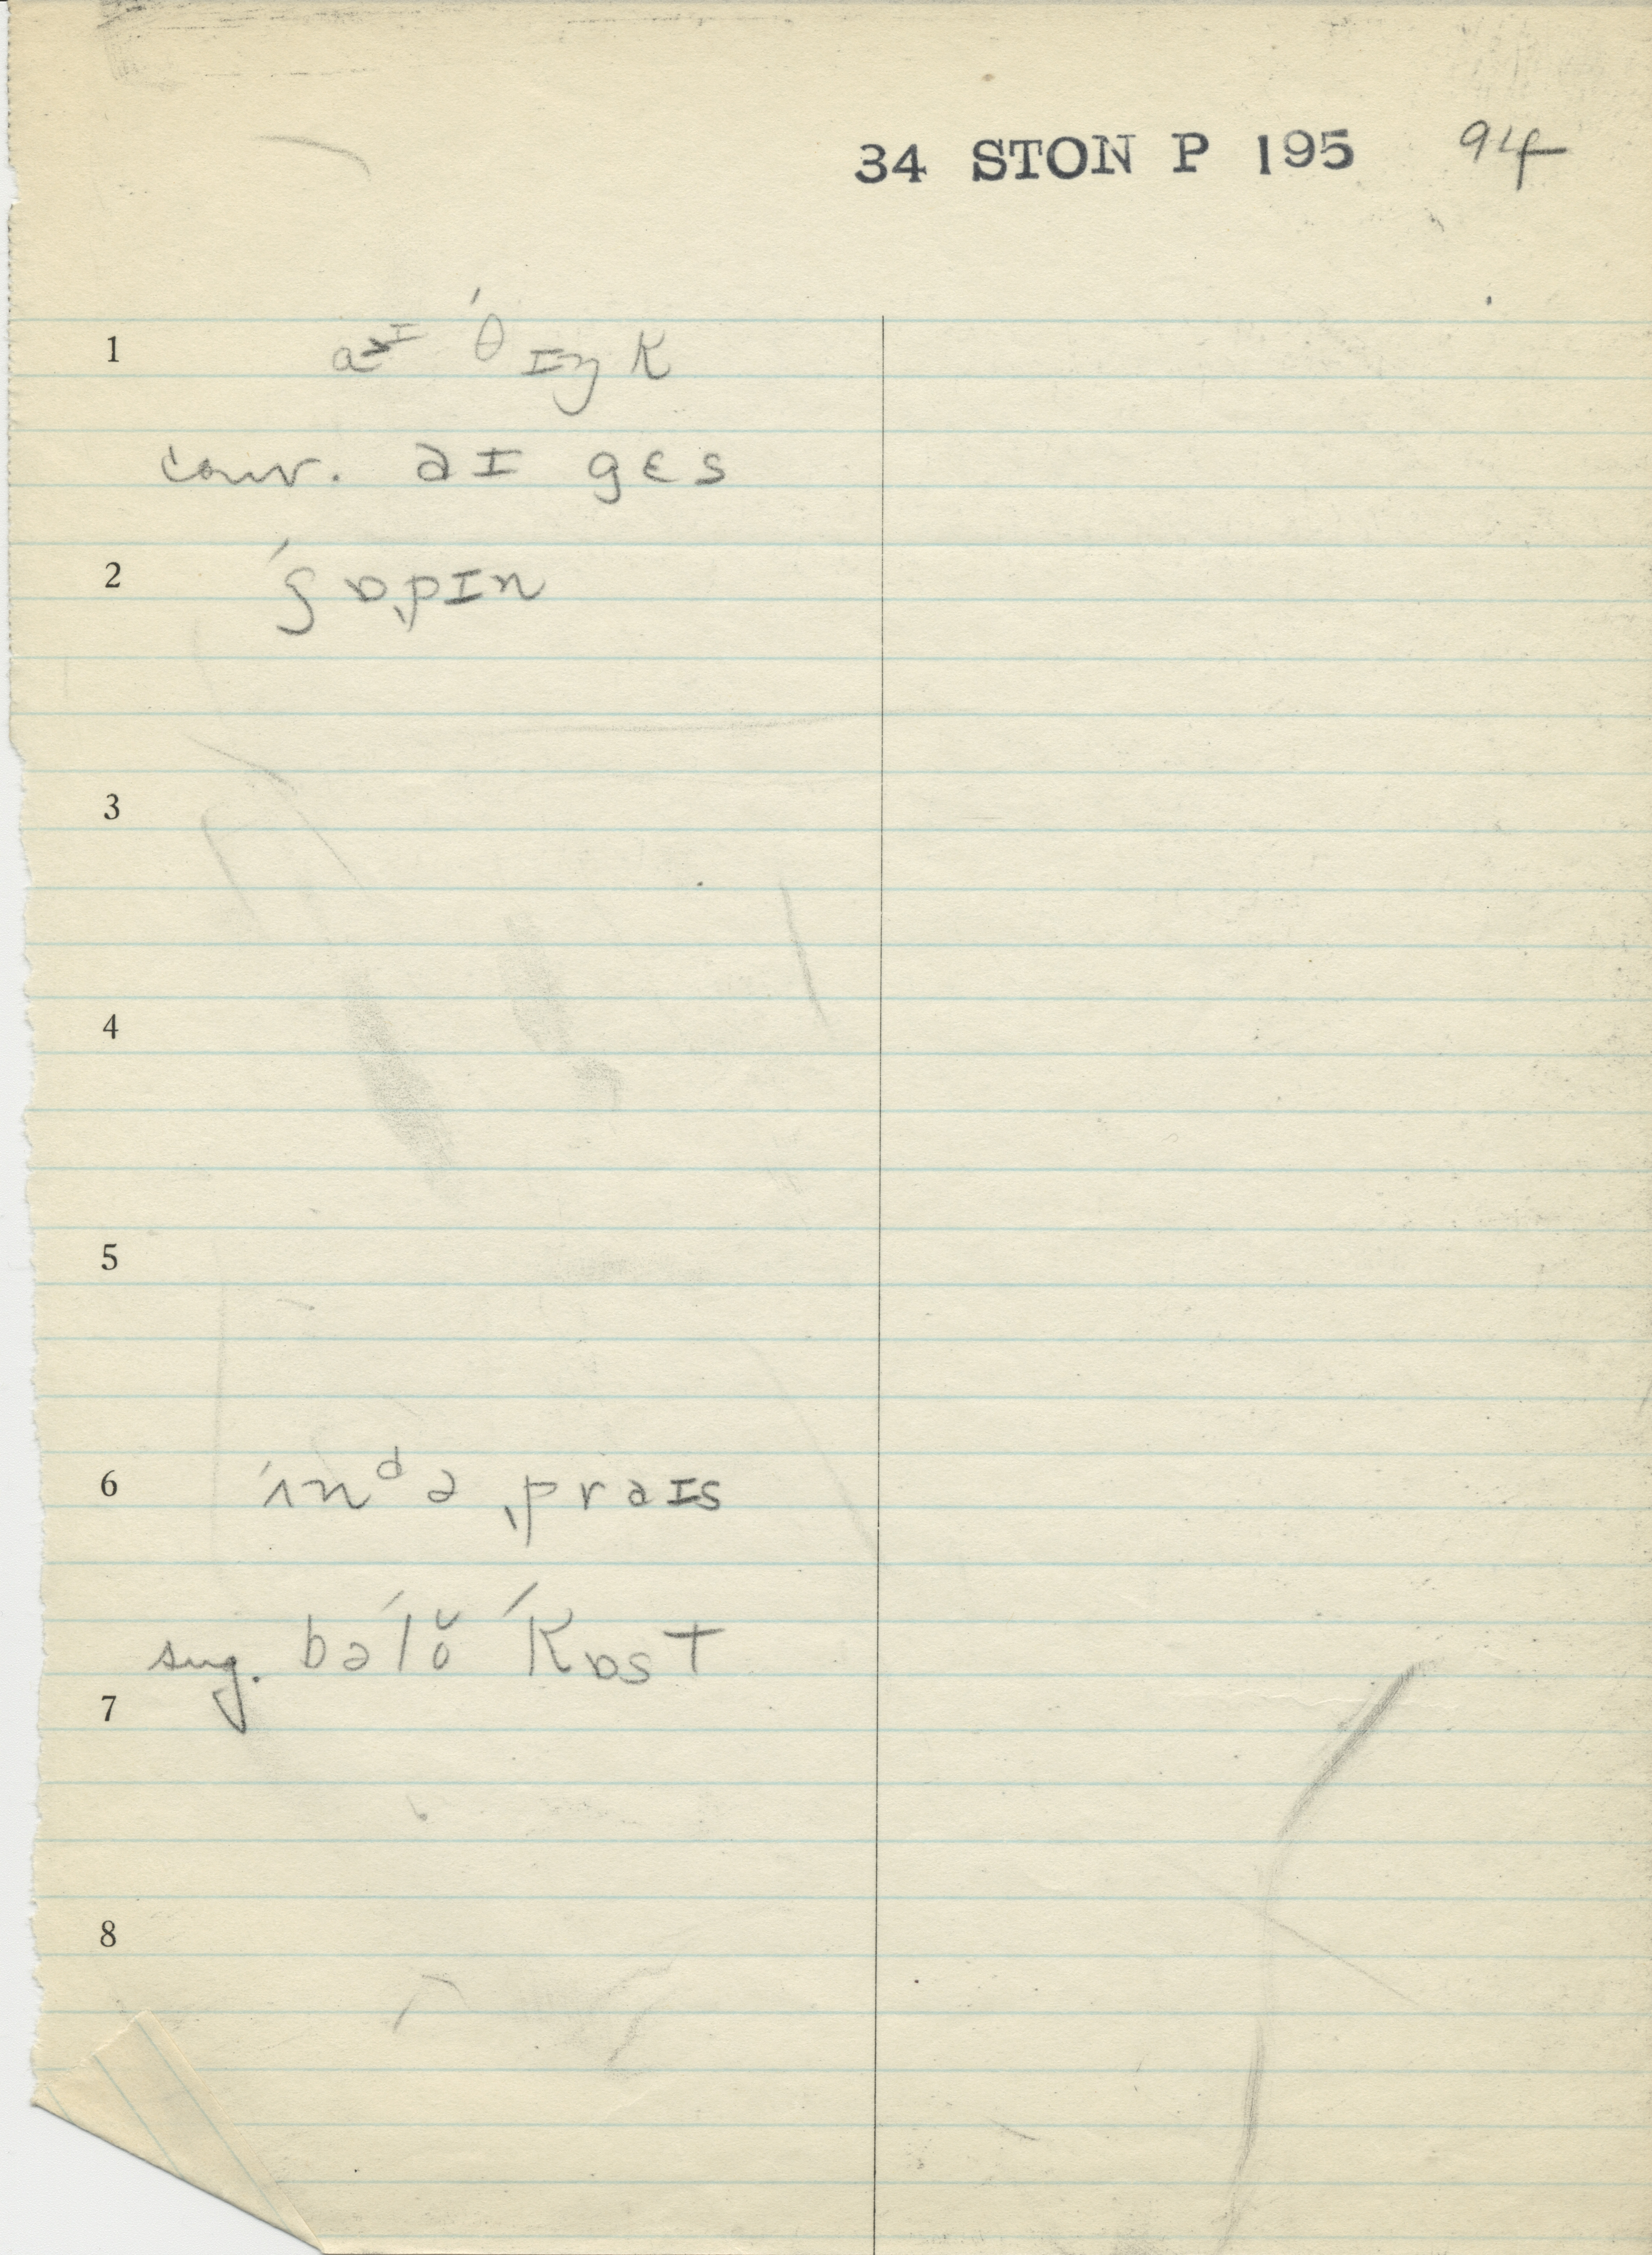 34 STON P 195 94
1 aɪ ˈθɪŋk
conv. aɪ gɛs
2 ˈʃɒˌpɪn
3
4
5
6 ˈɪnᵈə ˌpraɪs
sug. bəˈlŏ ˈkɒst
7
8